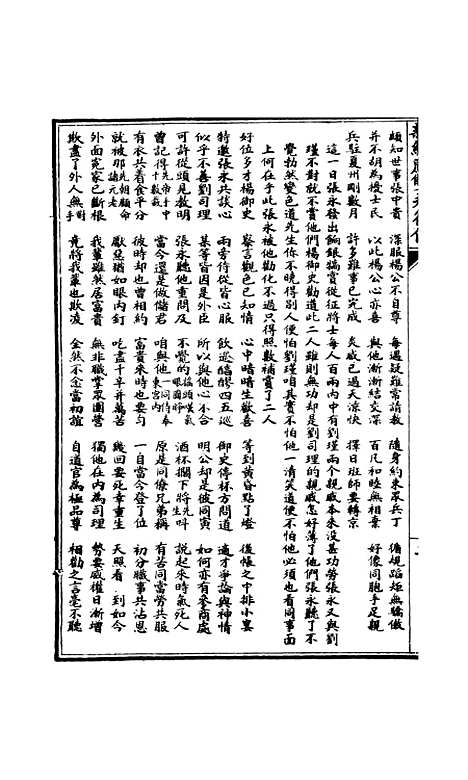 頗知世事張中貴　深服楊公不自尊　每遇疑難常請教　隨身約束眾兵丁　循規蹈矩無驕傲
并不胡為擾士民　以此楊公心亦喜　與他漸漸結交深　百凡和睦無相牽　好像同胞手足親
兵駐夏州剛數月　許多雜事已完成　炎威已過天涼快　擇日班師要轉京
這一日張永發出餉銀犒賞從征將士每人百兩內中有劉瑾兩個親戚本來沒甚功勞張永又與劉
瑾不對就不賞他們楊御史勸道此二人雖則無功却是劉司理的親戚怎好薄了他們張永聽了不
覺勃然變色道先生你不曉得別人便怕劉瑾咱其實不怕他一清笑道便不怕他必須也看同事面
上何在乎此張永被他勸化不過只得照數補賞了二人
好位多才楊御史　察言觀色已知情　心中暗暗生歡喜　等到黃昏點了燈　後帳之中排小宴
特邀張永共談心　兩旁侍從皆心服　飲過醽醁四五巡　御史停杯方問道　適才爭論與神情
似乎不善劉司理　某等皆因是外臣　所以與他心不合　明公却是彼同寅　如何亦有參商處
可許從頭見教明　張永聽他重問及　不覺的搖頭嘆氣眼圓睜　酒杯擱下將先生叫　說起來時氣死人
曾記得先帝手中十數載　當今還是做儲君　咱與他一同侍奉東宮內　原是同僚兄弟稱　有苦同當勞共服
有衣共着食平分　彼時却也曾相約　富貴來時也要勻　一自當今登了位　初分職事共沾恩
就被那先朝顧命諸元老　厭惡猶如眼內釘　吃盡千辛并萬苦　幾回要死幸重生　天照看到如今
外面冤家已斷根　我輩雖然居富貴　無非職掌眾團營　獨他在內為司理　勢要威權日漸增
欺盡了外人無　竟將我輩也欺凌　全然不念當初誼　自道官為極品尊　相勸之言毫不聽